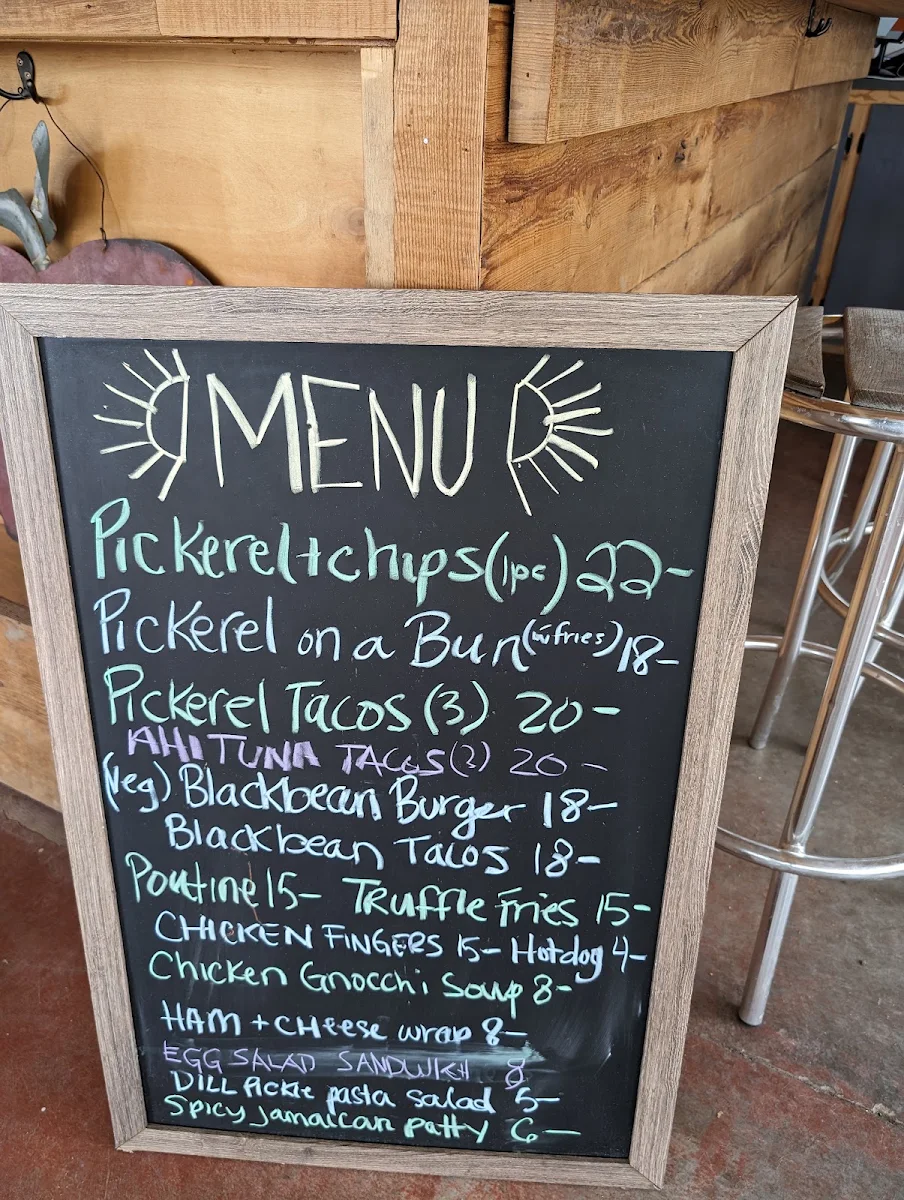 MENU
Pickerel + chips (1pc) 22-
Pickerel on a Bun (w fries) 18-
Pickerel Tacos (3) 20-
AHI TUNA TACOS (2) 20 -
(veg) Blackbean Burger 18-
Blackbean Tacos 18-
Poutine 15- Truffle Fries 15-
CHICKEN FINGERS 15- Hotdog 4-
Chicken Gnocchi Soup 8-
HAM + CHeese wrap 8-
EGG SALAD SANDWICH 8
DILL Pickle pasta salad 5-
Spicy Jamaican patty 6-